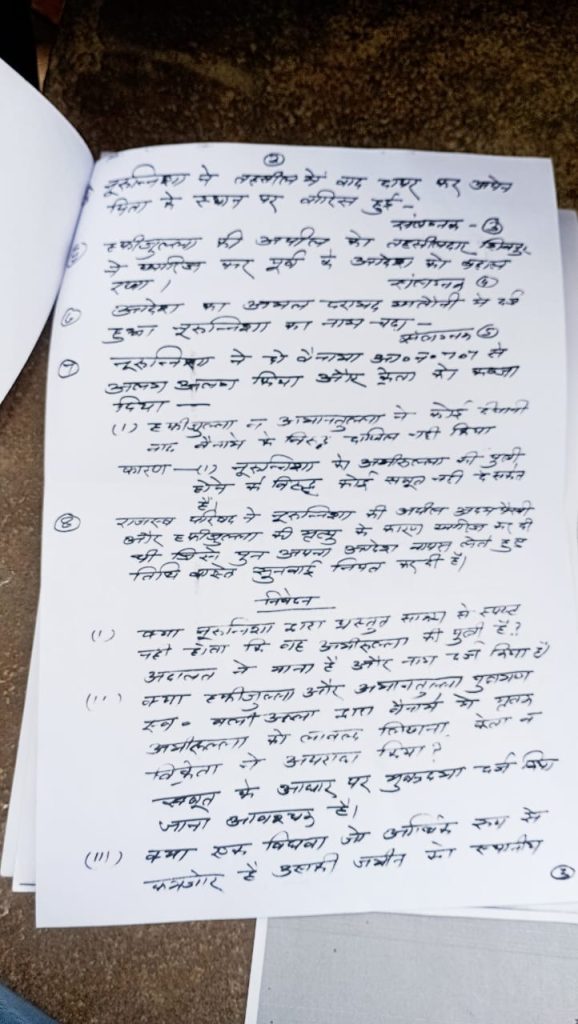 ②
नूरुन्निशा ने तहसील में वाद दायर कर अपने
पिता के स्थान पर वारिस हुई -
संलग्नक - ③
हफीजुल्ला की अपील को तहसीलदार
ने खारिज कर पूर्व के आदेश को बहाल
रखा। संलग्नक ④
⑥ आदेश का अमल दरामद खतौनी में दर्ज
हुआ नूरुन्निशा का नाम चढ़ा - संलग्नक ⑤
⑦ नूरुन्निशा ने दो बैनामा आ०न० 707 से
अलग अलग किया और क्रेता को कब्जा
दिया —
(1) हफीजुल्ला व अमानतुल्ला ने कोई दीवानी
वाद बैनामे के विरुद्ध दाखिल नहीं किया
कारण - (1) नूरुन्निशा के अमीरुल्ला की पुत्री
होने के विरुद्ध कोई सबूत नहीं दे सकते
हैं।
⑧ राजस्व परिषद ने नूरुन्निशा की अपील अदम पैरवी
और हफीजुल्ला की मृत्यु के कारण खारिज कर दी
थी जिसे पुनः अपना आदेश वापस लेते हुए
तिथि वास्ते सुनवाई नियत कर दी है।
निवेदन
(I) क्या नूरुन्निशा द्वारा प्रस्तुत साक्ष्य से स्पष्ट
नहीं होता कि वह अमीरुल्ला की पुत्री है?
अदालत ने माना है और नाम दर्ज किया है।
(II) क्या हफीजुल्ला और अमानतुल्ला पुत्रगण
स्व० अल्ला द्वारा बैनामे में मृतक
अमीरुल्ला को लावल्द लिखाना क्रेता व
विक्रेता ने अपराध किया?
सबूत के आधार पर मुकदमा दर्ज किया
जाना आवश्यक है।
(III) क्या एक विधवा जो आर्थिक रूप से
कमजोर है उसकी जमीन को स्थानीय
③